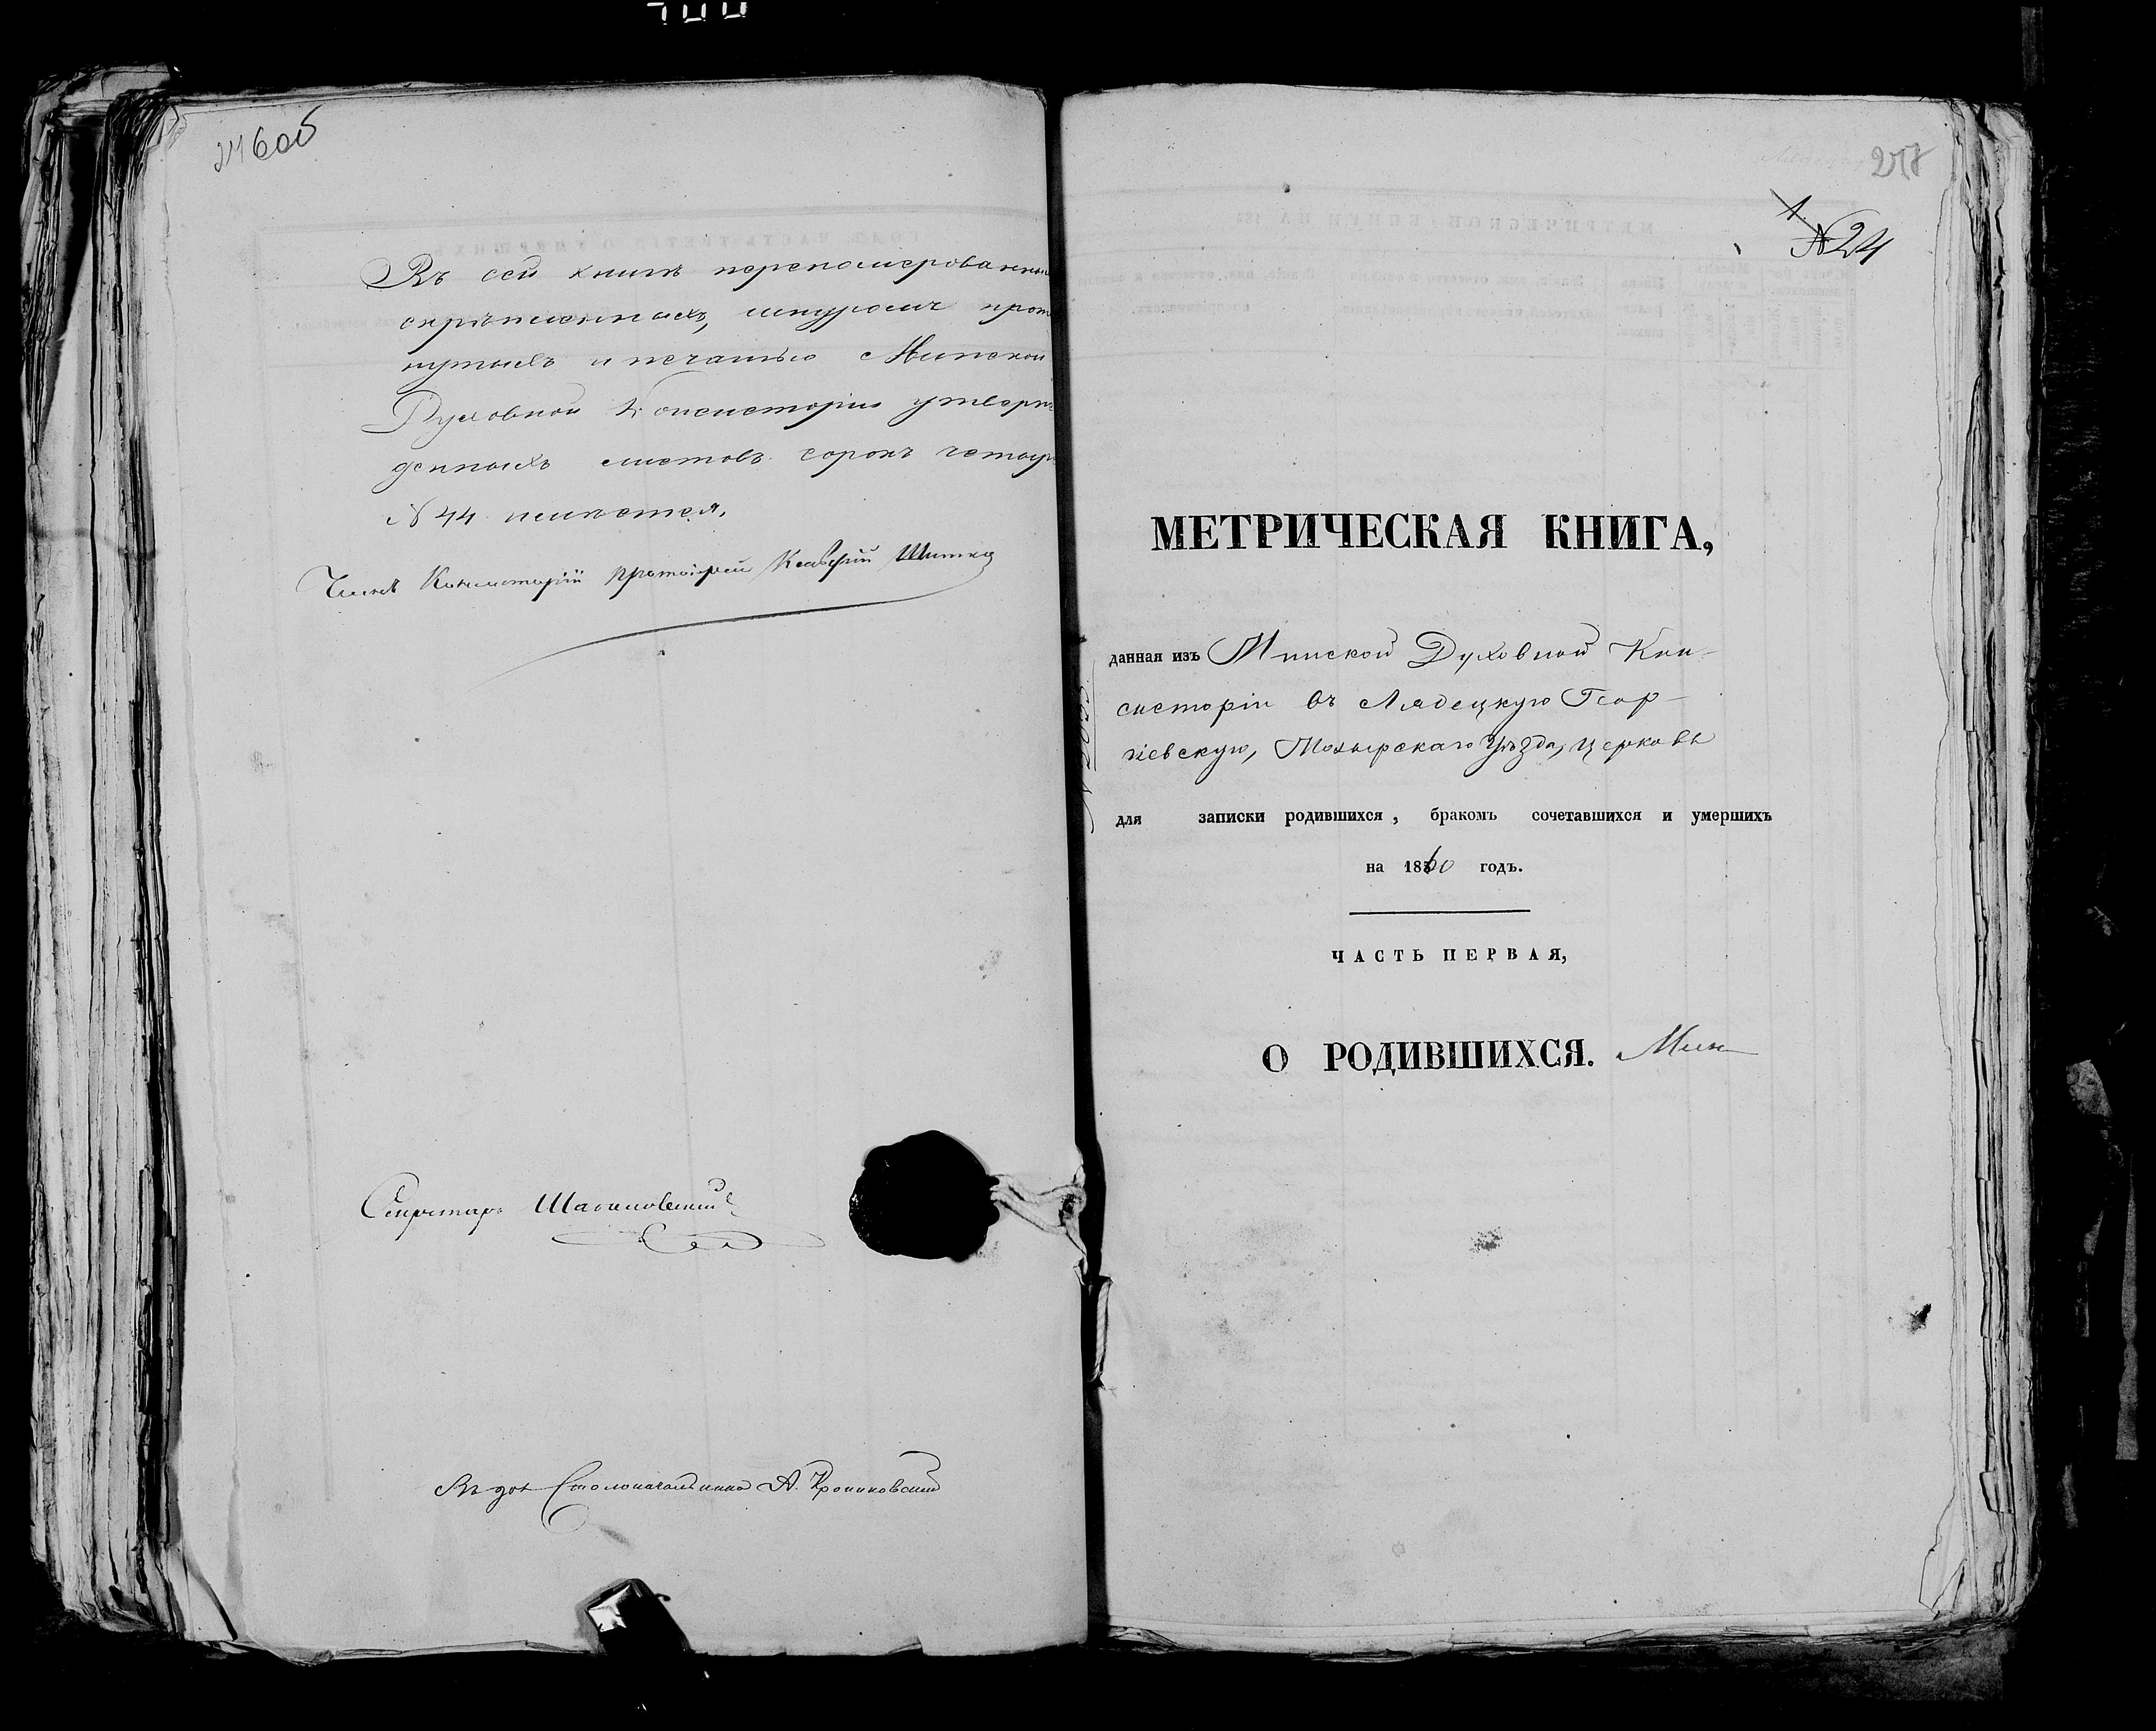 246 об
Въ сей книгѣ перенумерованны
скрѣпленныхъ, шнуромъ прот
нутыхъ и печатью Минской
Духовной Консисторіи утверж
денныхъ листовъ сорокъ четыр
№ 44 имѣется.
Членъ Консисторіи протоіерей
Секретарь
Столоначальника А.
№ 24
МЕТРИЧЕСКАЯ КНИГА,
данная изъ Минской Духовной Кон-
систоріи въ Лядецкую Геор-
гіевскую, Мозырскаго уѣзда, церковь
для записки родившихся, бракомъ сочетавшихся и умершихъ
на 1860 годъ.
ЧАСТЬ ПЕРВАЯ,
О РОДИВШИХСЯ.